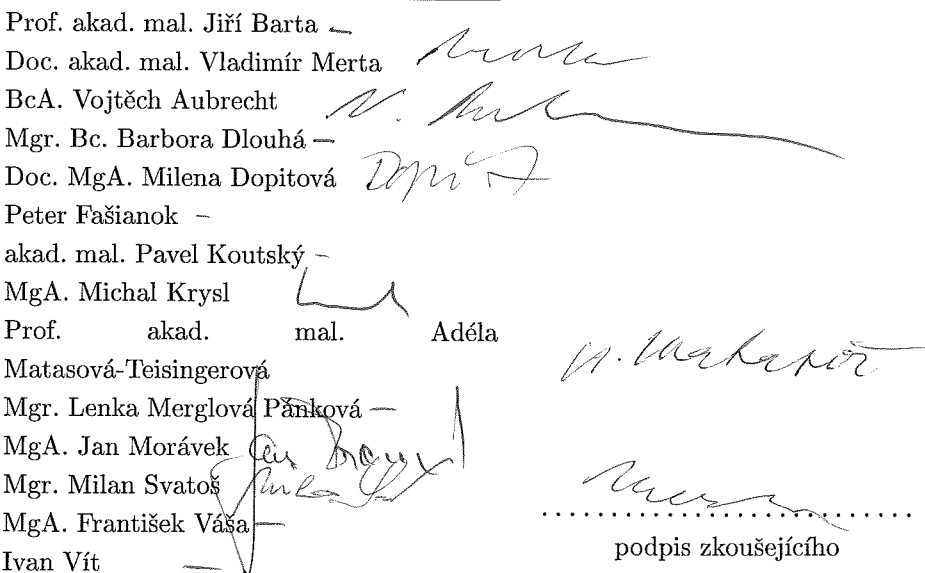 Prof. akad. mal. Jiří Barta –
Doc. akad. mal. Vladimír Merta
BcA. Vojtěch Aubrecht
Mgr. Bc. Barbora Dlouhá –
Doc. MgA. Milena Dopitová
Peter Fašianok –
akad. mal. Pavel Koutský –
MgA. Michal Krysl
Prof. akad. mal. Adéla
Matasová-Teisingerová
Mgr. Lenka Merglová Pánková –
MgA. Jan Morávek
Mgr. Milan Svatoš
MgA. František Váša –
Ivan Vít –
....................................
podpis zkoušejícího